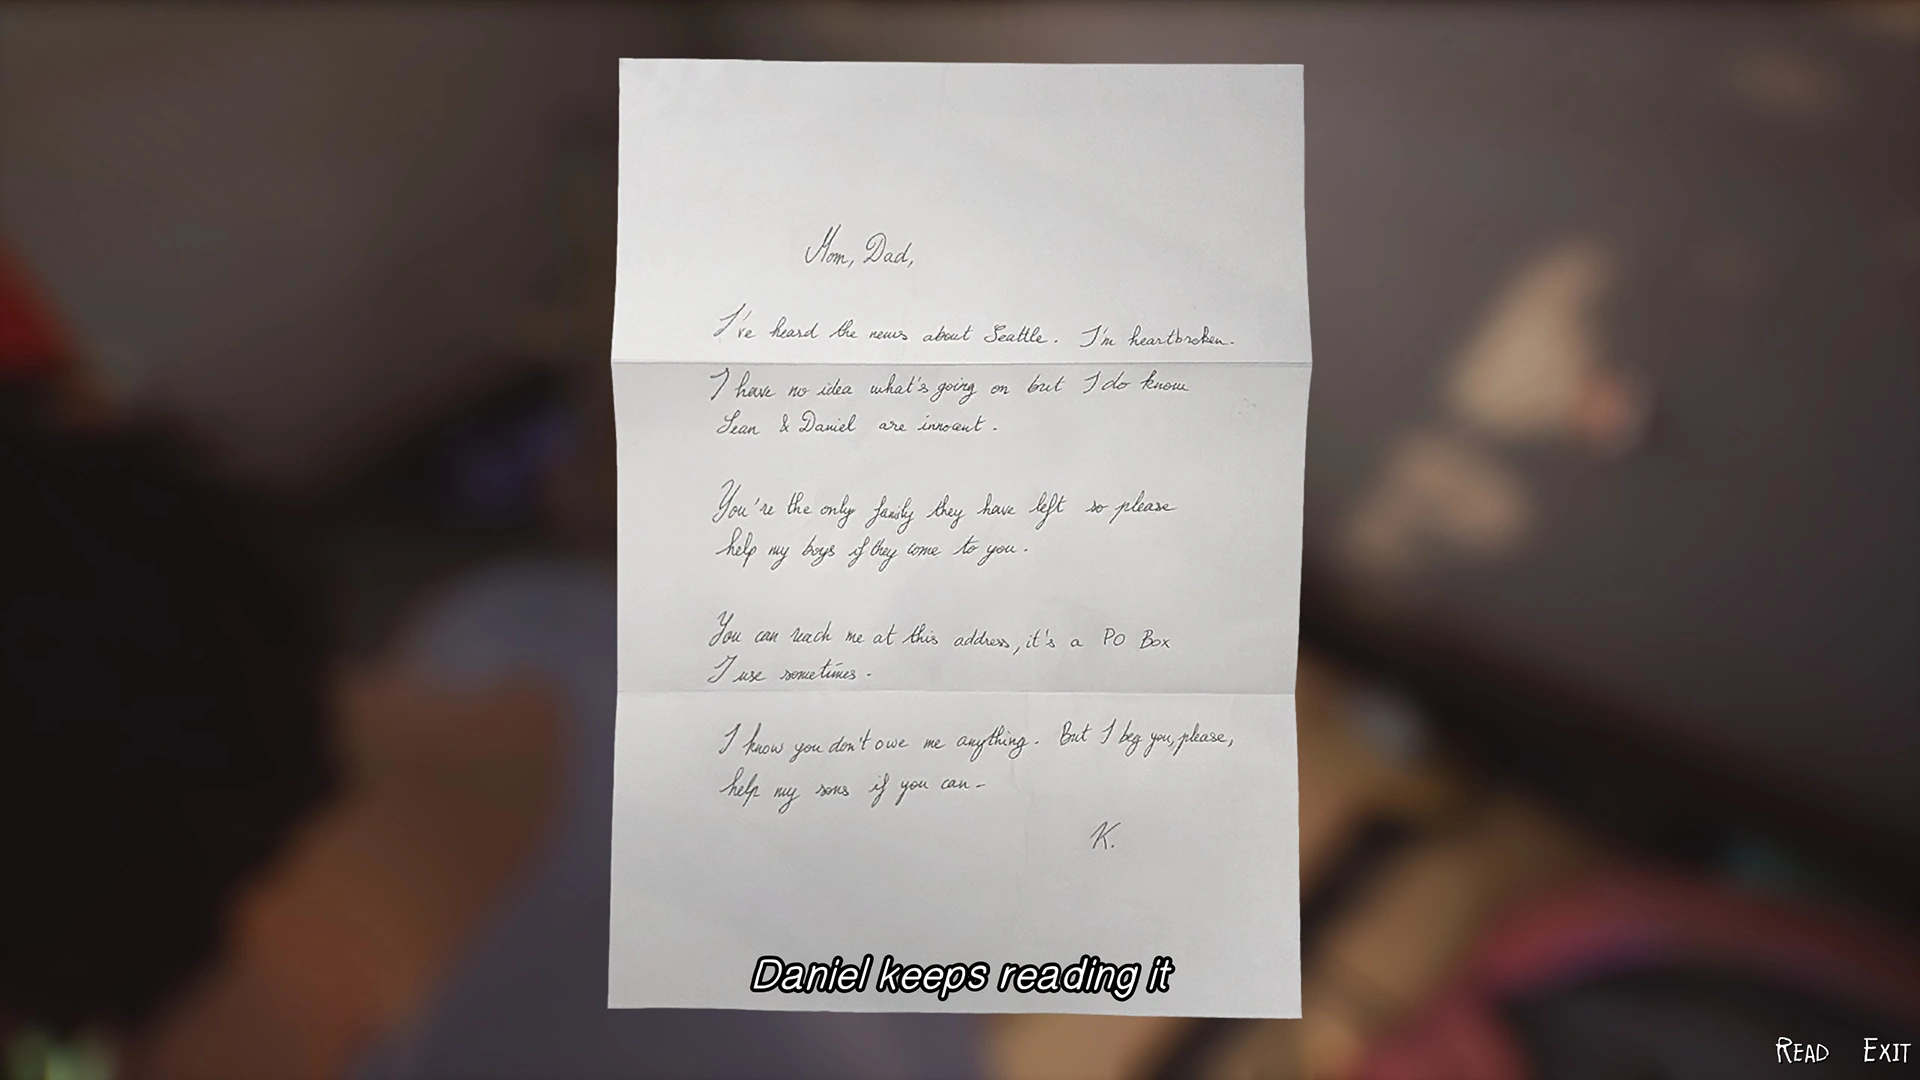 Mom, Dad,
I've heard the news about Seattle. I'm heartbroken.
I have no idea what's going on but I do know
Sean & Daniel are innocent.
You're the only family they have left so please
help my boys if they come to you.
You can reach me at this address, it's a PO Box
I use sometimes.
I know you don't owe me anything. But I beg you, please,
help my sons if you can-
K.
Daniel keeps reading it
READ EXIT